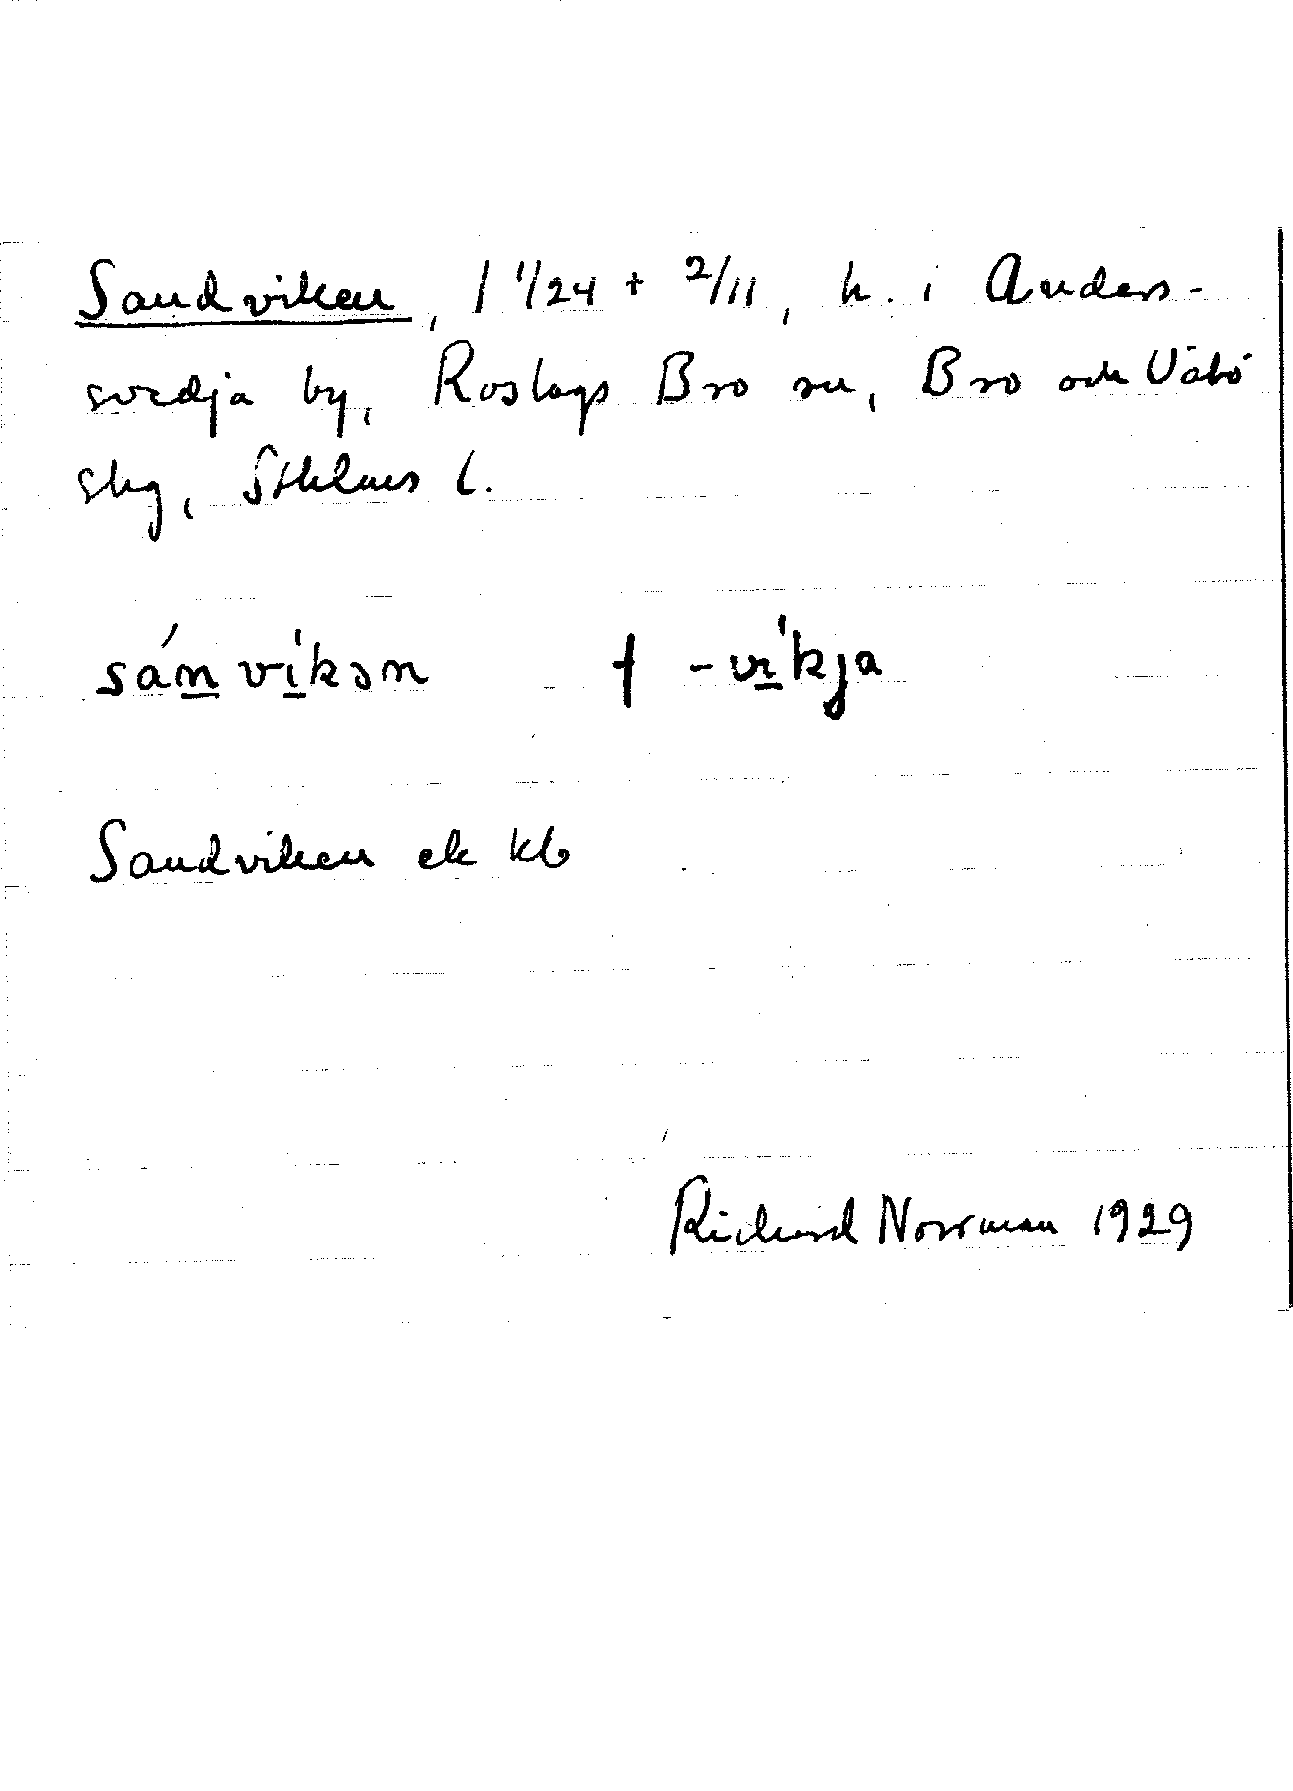 Sandviken, 1 1/24 + 2/11, h. i Anders-
svedja by, Roslags Bro sn, Bro och Vätö
skg, Sthlms l.
sánvíkən † -víkja
Sandviken ek kb
Richard Norrman 1929